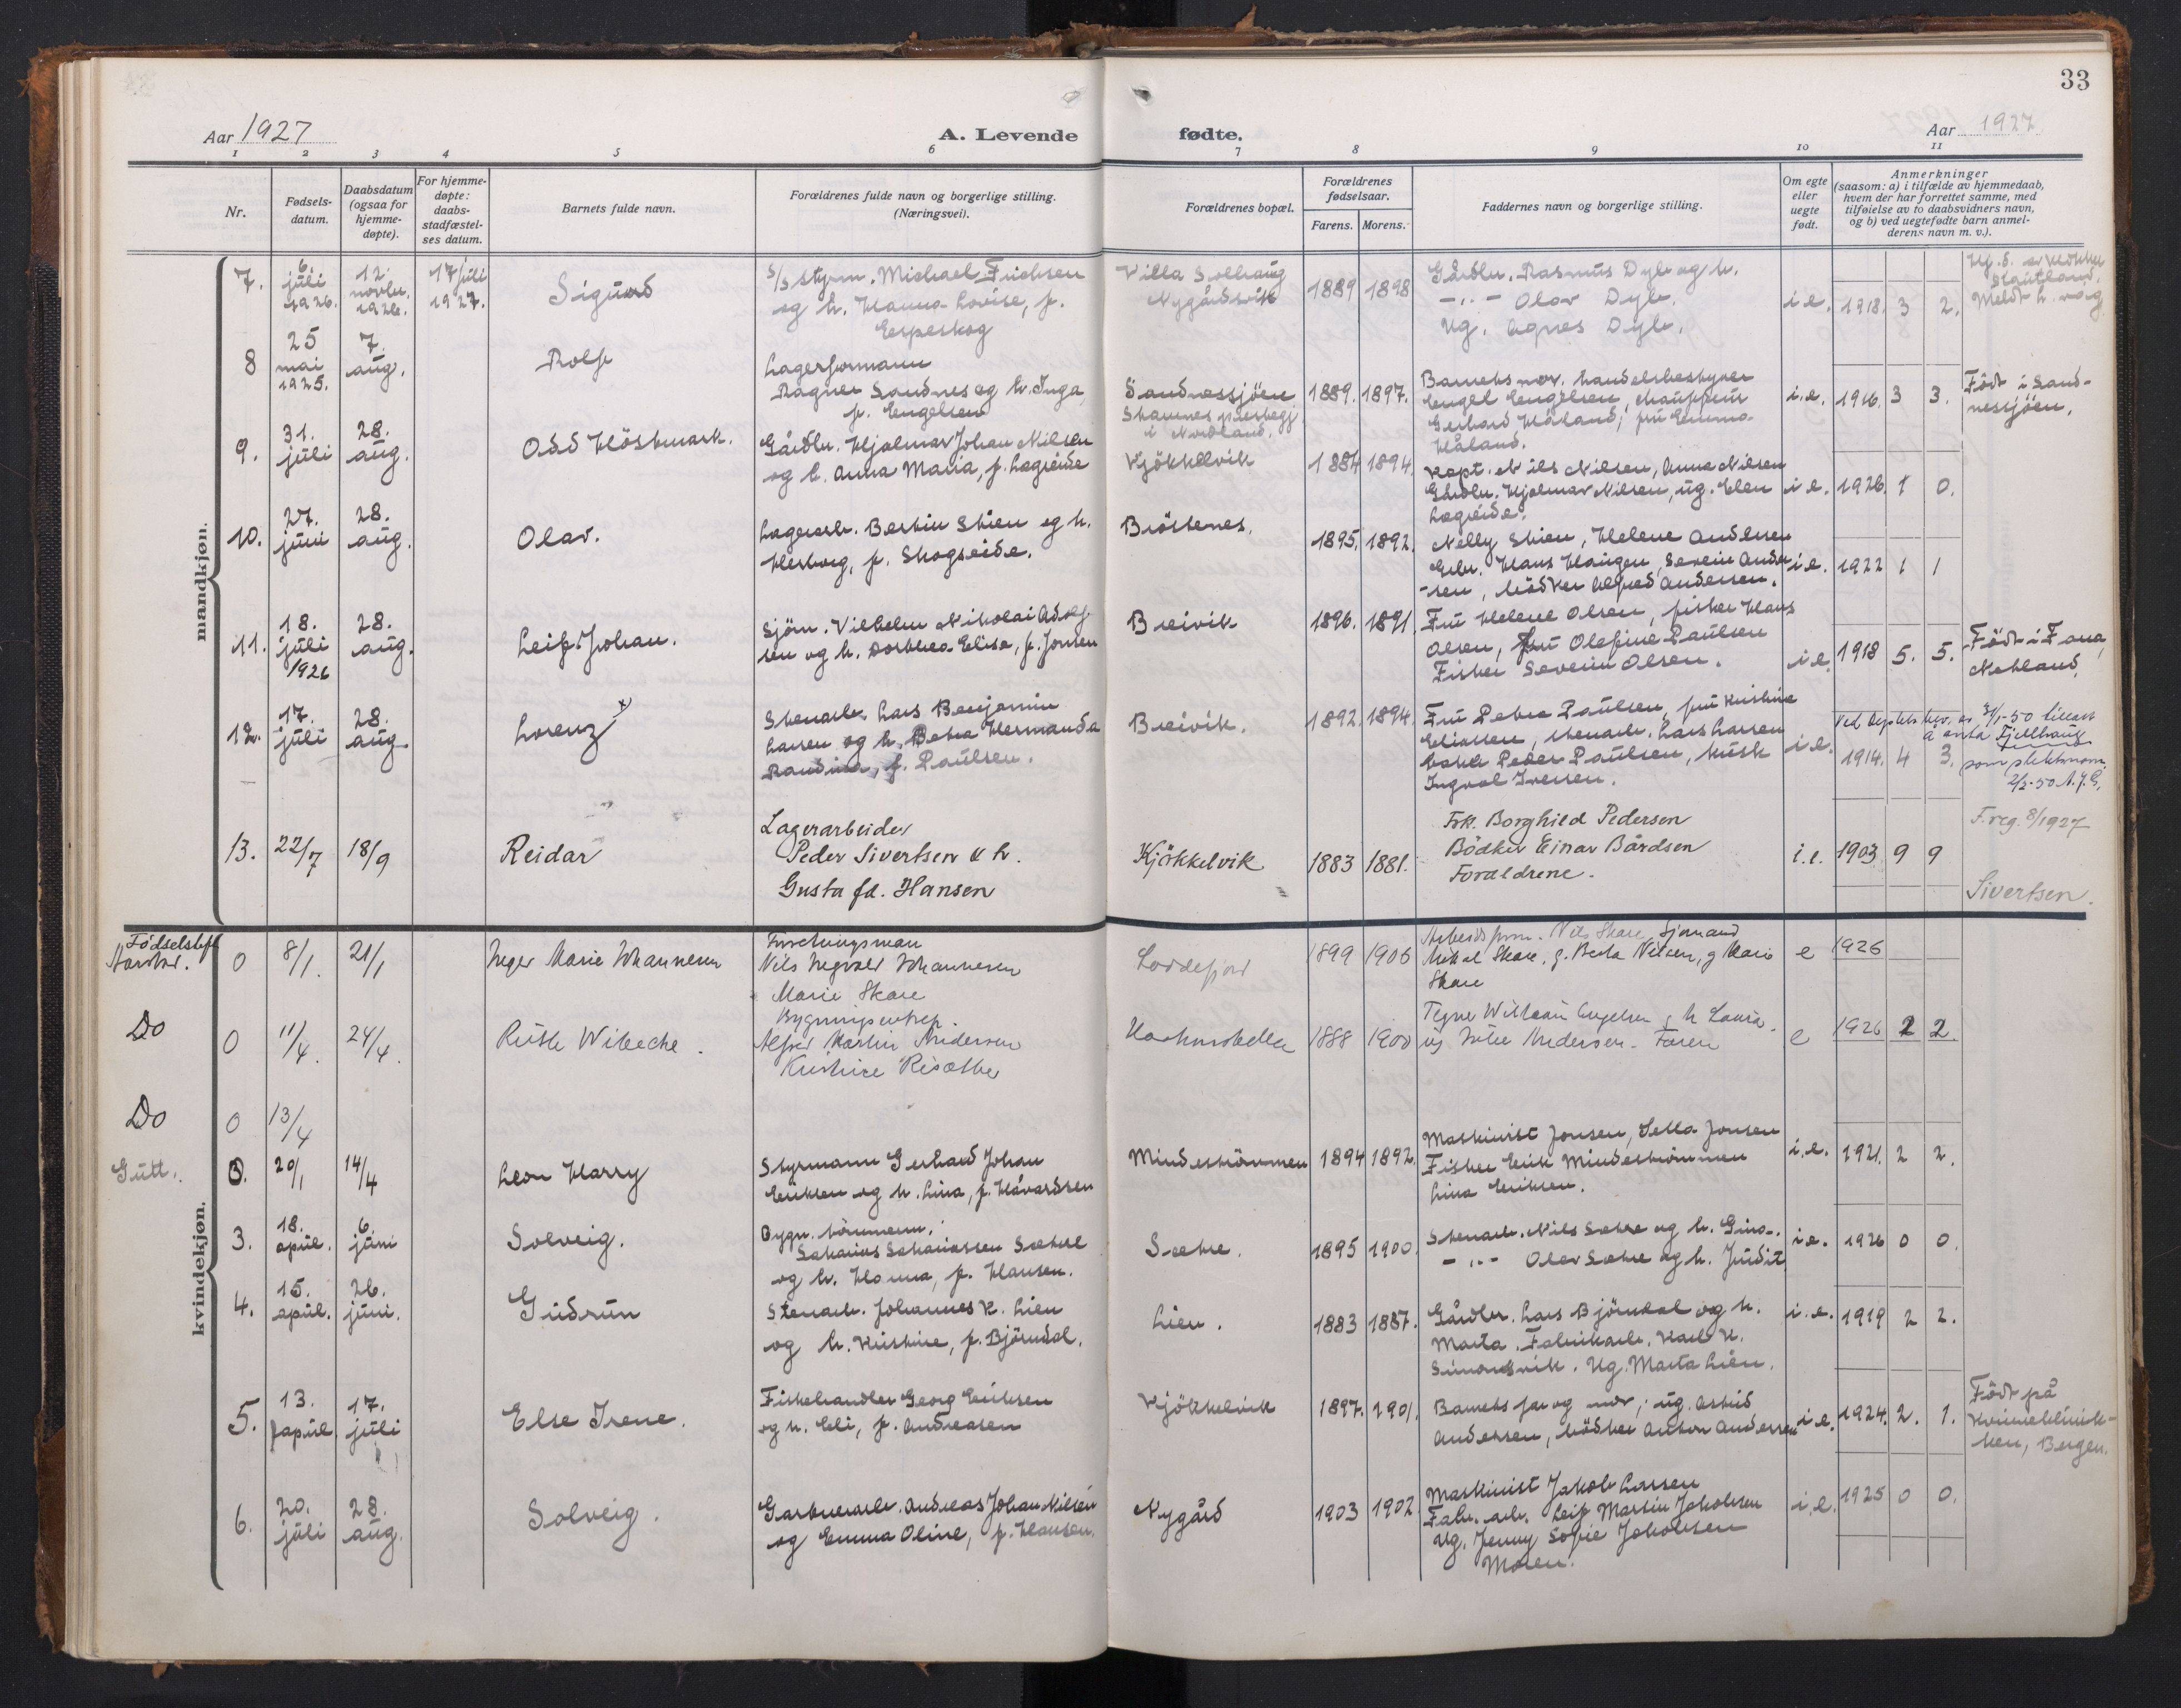 33
Aar 1927
A. Levende
fødte.
Aar 1927
1 2 3 4 5 6 7 8 9 10 11
Nr.
Fødsels-
datum.
Daabsdatum
(ogsaa for
hjemme-
døpte).
For hjemme-
døpte:
daabs-
stadfæstel-
ses datum.
Barnets fulde navn.
Forældrenes fulde navn og borgerlige stilling.
(Næringsvei).
Forældrenes bopæl.
Forældrenes
fødselsaar.
Farens. Morens.
Faddernes navn og borgerlige stilling.
Om egte
eller
uegte
født.
Anmerkninger
(saasom: a) i tilfælde av hjemmedaab,
hvem der har forrettet samme, med
tilføielse av to daabsvidners navn,
og b) ved uegtefødte barn anmel-
derens navn m. v.).
mandkjøn.
7.
6.
juli
1926.
12.
novbr.
1926.
17 juli
1927.
Sigurd
s/s styrm. Michael Erichsen
og h. Hanna Lovise, f.
Espeskog
Villa Solhaug
Nygårdsvik
1889 1898
Gårdbr. Rasmus Dyb og h.
-"- Olav Dyb.
Ug. Agnes Dyb.
i e. 1918. 3 2.
8
25
mai
1925.
7.
aug.
Rolf
Lagerformann
Ragnar Sandnes og h. Inga,
f. Engelsen
Sandnessjøen
Stamnes prestegj.
i Nordland.
1889. 1897.
Barnets mor, handelsbestyrer
Engel Engelsen,
Gerhard Håland, fru Emma
Håland.
i.e. 1916. 3 3.
Født i Sand-
nessjøen.
9.
31.
juli
28.
aug.
Odd Høstmark.
Gårdbr. Hjalmar Johan Nilsen
og h. Anna Maria, f. Lægreide
Kjøkkelvik
1884 1894.
Kapt. Nils Nilsen, Anna Nilsen
Gårdbr. Hjalmar Nilsen, ug. Elen
Lægreide.
i e. 1926. 1 0.
10.
27.
juni
28.
aug.
Olav.
Lagerarb. Bertin Skien og h.
Herborg, f. Skogseide.
Brøstenes.
1895. 1892.
Nelly Skien, Helene Andersen
Gbr. Hans Haugen, Severin Ander
-sen, bødker Alfred Andersen.
i e. 1922 1 1
11.
18.
juli
1926
28.
aug.
Leif Johan.
Sjøm. Vilhelm Nikolai Adolf
sen og h. Dorthea Elise, f. Jonsen
Breivik
1896. 1891.
Fru Helene Olsen, fisker Hans
Olsen, fru Olefine Paulsen
Fisker Severin Olsen.
i e. 1918 5. 5.
Født i Fana,
Nekland.
12.
17.
juli
28.
aug.
Lorenz x
Stenarb. Lars Benjamin
Larsen og h. Petra Hermanda
Randina, f. Paulsen.
Breivik.
1892. 1894.
Fru Petra Paulsen, fru Kristine
Eliassen, stenarb. Lars Larsen
Peder Paulsen, kusk
Ingval Iversen.
i e. 1914. 4 3.
Ved dept.s brv. av 31/1-50 tillatt
å anta Fjellhaug
som slektsnavn.
2/2-50 A.J.G.
13.
22/7
18/9
Reidar
Lagerarbeider
Peder Sivertsen & h.
Gusta fd. Hansen
Kjøkkelvik
1883 1881.
Frk. Borghild Pedersen
Bødker Einar Bårdsen
Foraldrene.
i.e. 1903 9 9
F. reg. 8/1927
Sivertsen.
kvindekjøn.
Fødselsbft
0
8/1.
21/1
Inger Marie Johannesen
Nils Ingvald Johannesen
Marie Skare
Loddefjord
1899 1906
Arbeidsform. Nils Skare, Sjømand
Mikal Skare, g. Berta Nilsen, g Mari
Skare
e 1926
Do
0
11/4.
24/4.
Ruth Wibeche.
Bygningsentrep.
Alfred Martin Andersen
Kristine Risøther
1888 1900
Andersen. Faren
e 1926 2 2.
Do
0
13/4
Gutt.
0.
20/1
14/4
Leon Harry
Styrmann Gerhard Johan
Eriksen og h. Lina, f. Håvardsen
Mindestrømmen
1894 1892.
Maskinist Jonsen, Sella Jonsen
Fisker Erik Mindestrømmen
Lina Eriksen.
i.e. 1921. 2 2.
3.
18.
april.
6.
juni
Solveig.
Bygn. tømmerm.
Sakarias Sakariassen Sætre
og h. Hanna, f. Hansen.
Sætre.
1895 1900.
Stenarb. Nils Sætre og h. Gina.
-"- Olav Sætre og h. Judit.
i e. 1926 0 0.
4.
15.
april.
26.
juni.
Gudrun
Stenarb. Johannes K. Lien
og h. Kristine, f. Bjørndal.
Lien.
1883 1887.
Gårdbr. Lars Bjørndal og h.
Marta. Fabrikarb. Karl K.
Simonsvik. Ug. Marta Lien.
i.e. 1919 2 2.
5.
13.
april
17.
juli
Else Irene.
Fiskehandler Georg Eriksen
og h. Eli, f. Andreasen
Kjøkkelvik
1897. 1901.
Barnets far og mor, ug. Astrid
Andersen, bødker Anton Andersen
i e. 1924. 2. 1.
Født på
Kvineklinik-
ken, Bergen.
6.
20.
juli
28.
aug.
Solveig.
Garverarb. Andreas Johan Nilsen
og Emma Oline, f. Hansen.
Nygård
1903 1902
Maskinist Jakob Larsen
Fabr. arb. Leif Martin Jakobsen
Ug. Jenny Sofie Jakobsen
Moren.
i.e. 1925 0 0.